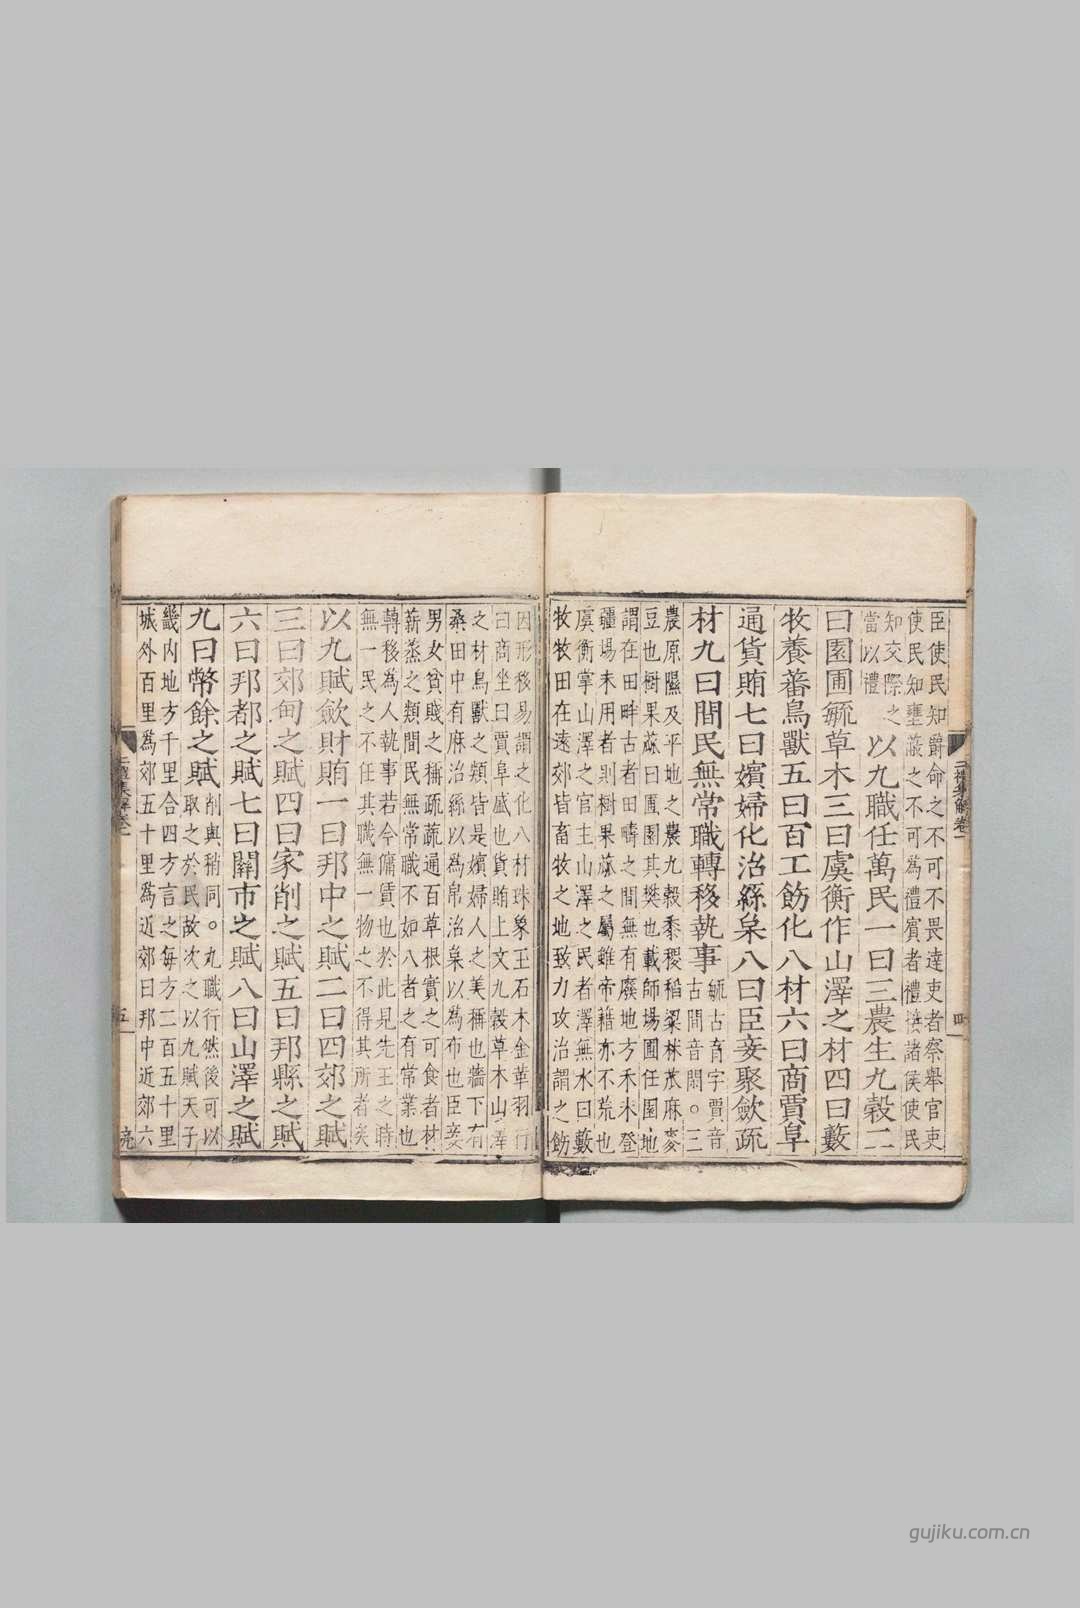 臣使民知爵命之不可不畏達吏者察舉官吏
使民知壅蔽之不可為禮賓者禮接諸侯使民
知交際之
當以禮
以九職任萬民一曰三農生九穀二
曰園圃毓草木三曰虞衡作山澤之材四曰藪
牧養蕃鳥獸五曰百工飭化八材六曰商賈阜
通貨賄七曰嬪婦化治絲枲八曰臣妾聚斂疏
材九曰閒民無常職轉移執事
毓古育字賈音
古閒音閑。三
農原隰及平地之農九穀黍稷稻粱秫苽麻麥
豆也樹果蓏曰圃園其樊也載師場圃任園地
謂在田畔古者田疇之間無有廢地方禾未登
疆場未用者則樹果蓏之屬雖帝籍亦不荒也
虞衡掌山澤之官主山澤之民者澤無水曰藪
牧牧田在遠郊皆畜牧之地致力攻治謂之飭
因形移易謂之化八材珠象玉石木金革羽行
曰商坐曰賈阜盛也貨賄上文九穀草木山澤
之材鳥獸之類皆是嬪婦人之美稱也牆下有
桑田中有麻治絲以為帛治枲以為布也臣妾
男女貧賤之稱疏蔬通百草根實之可食者材
薪蒸之類閒民無常職不如八者之有常業也
轉移為人執事若今傭賃也於此見先王之時
無一民之不任其職無一物之不得其所者矣
以九賦斂財賄一曰邦中之賦二曰四郊之賦
三曰郊甸之賦四曰家削之賦五曰邦縣之賦
六曰邦都之賦七曰關市之賦八曰山澤之賦
九曰幣餘之賦
削與稍同。九職行然後可以
取之於民故次之以九賦天子
畿内地方千里合四方言之每方二百五十里
城外百里為郊五十里為近郊曰邦中近郊六
二禮集解卷一
四
五
gujiku.com.cn